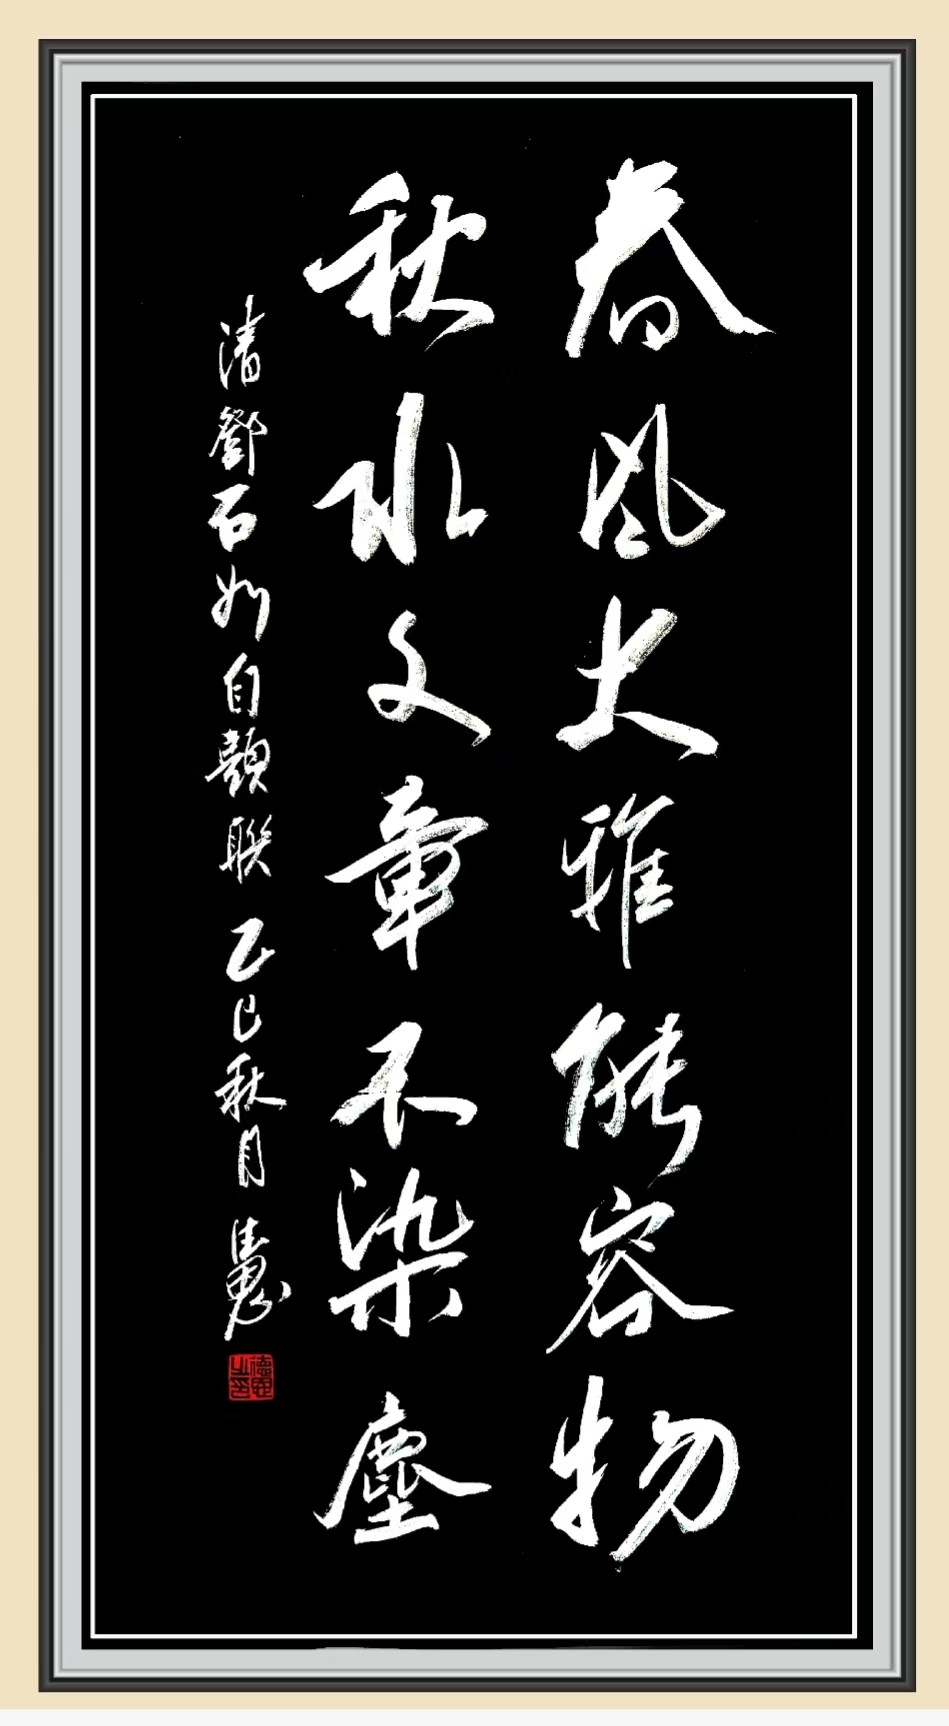 春風大雅能容物
秋水文章不染塵
清鄧石如自題聯 乙巳秋月